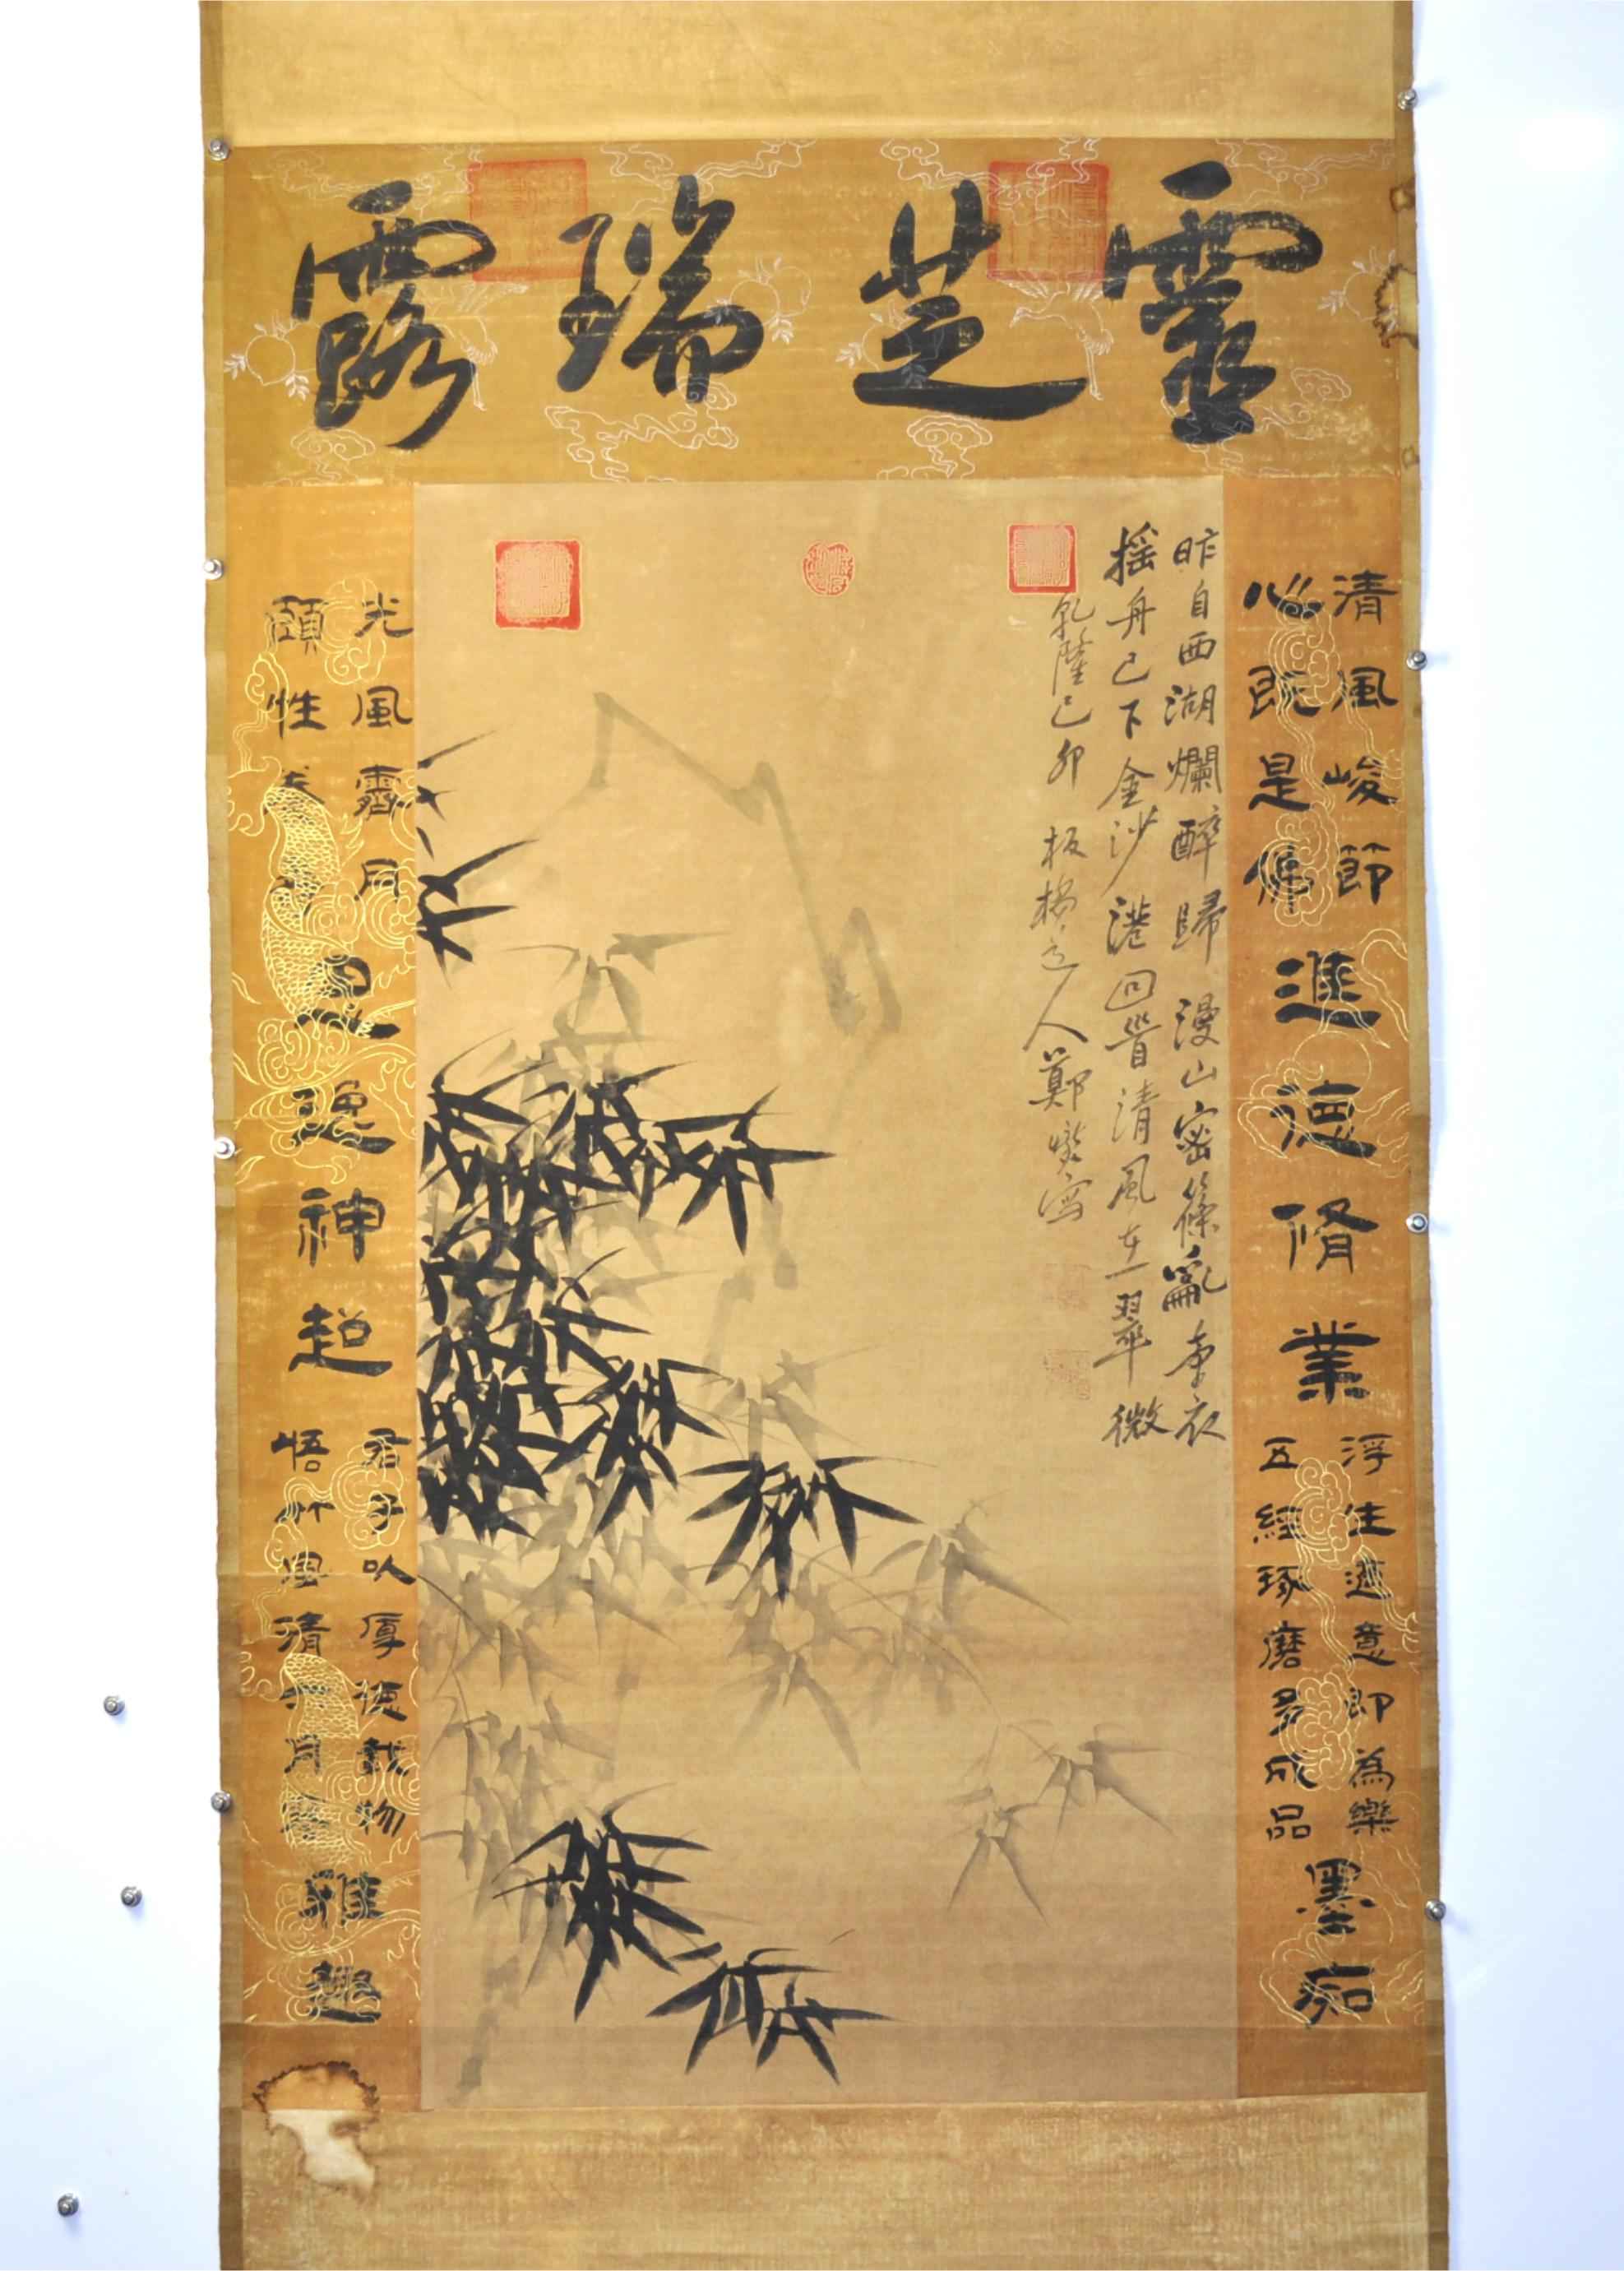 靈芝瑞露
昨自西湖爛醉歸漫山密篠亂牽衣
搖舟已下金沙港回首清風在翠微
乾隆己卯 板橋道人鄭燮寫
清風峻節
心既是佛
進德脩業
浮生適意即為樂
五經琢磨多成品
墨痴
光風霽月
頤性
逸神超
君子以厚德載物
悟竹風清 月
雅趣